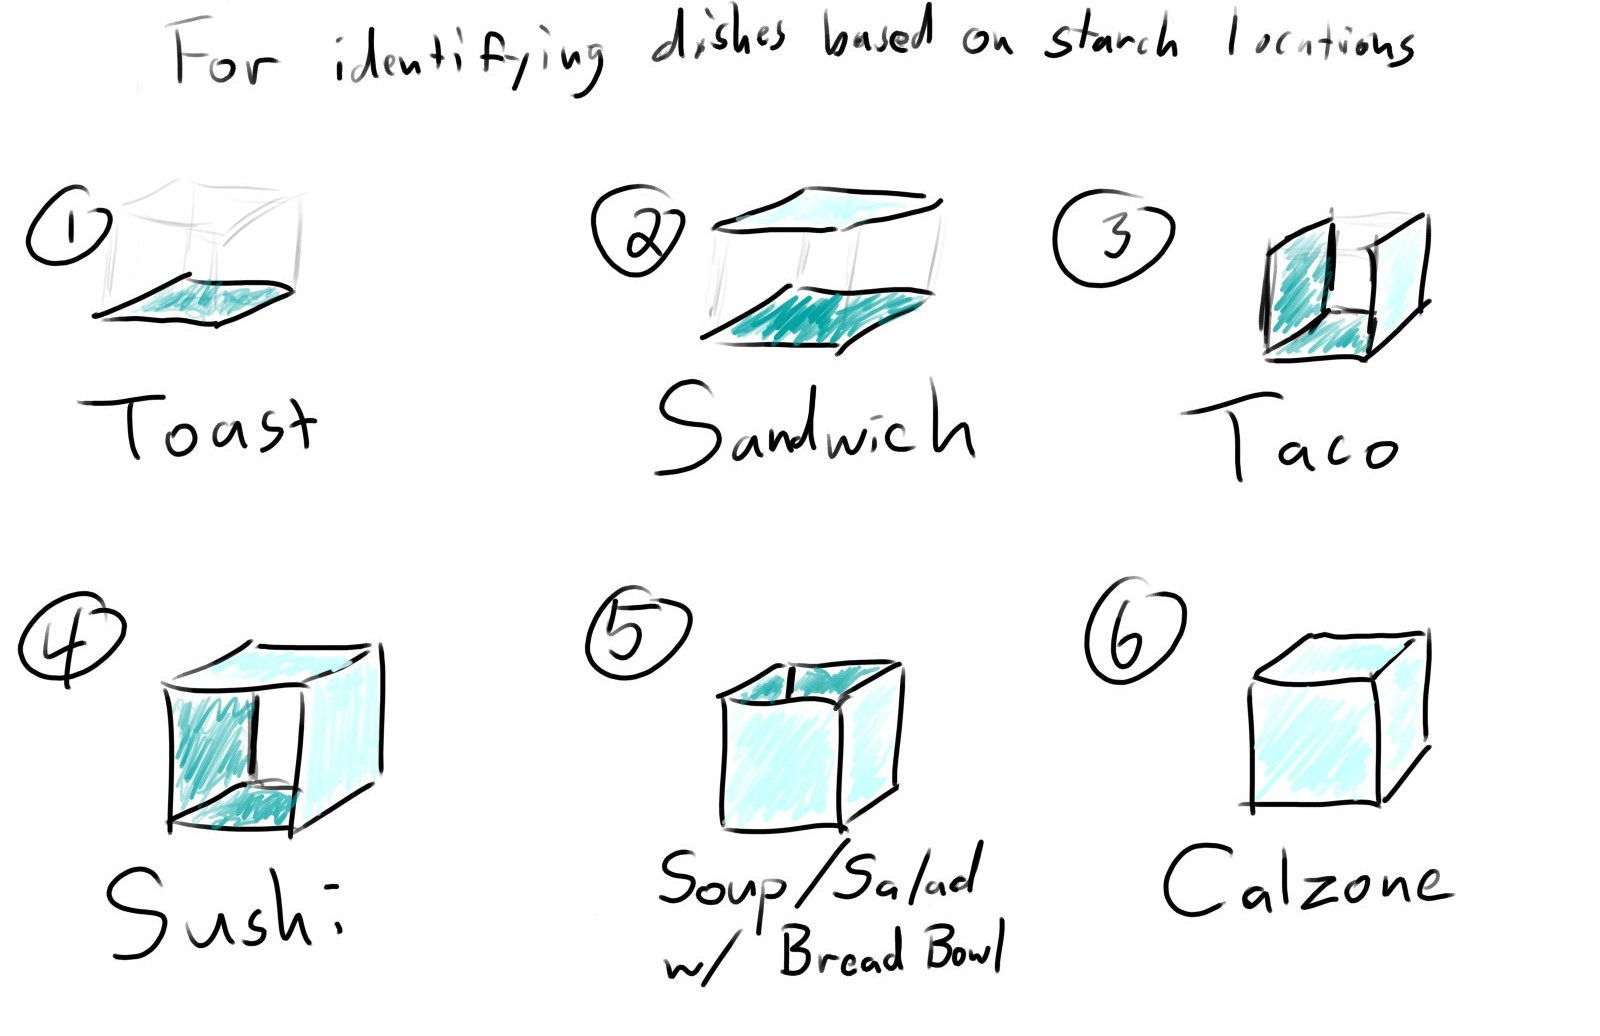 For identifying dishes based on starch locations
1
2
3
Toast
Sandwich
Taco
4
5
6
Sushi
Soup/Salad
w/ Bread Bowl
Calzone